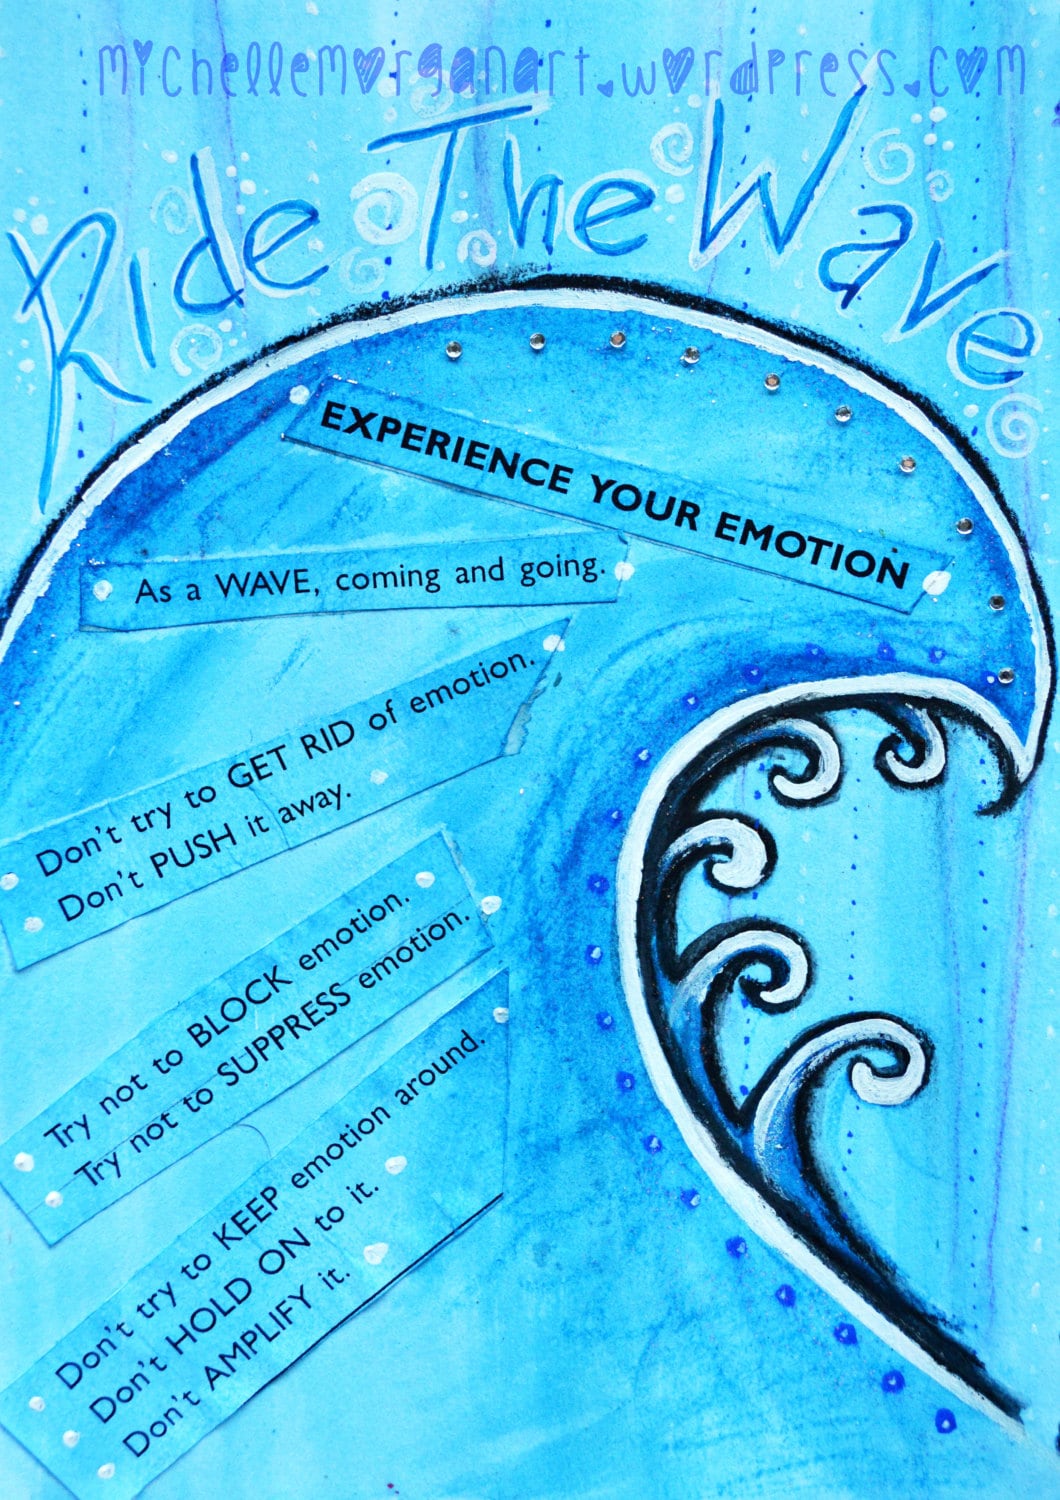 michellemorganart.wordpress.com
Ride The Wave
EXPERIENCE YOUR EMOTION
As a WAVE, coming and going.
Don't try to GET RID of emotion.
Don't PUSH it away.
Try not to BLOCK emotion.
Try not to SUPPRESS emotion.
Don't try to KEEP emotion around.
Don't HOLD ON to it.
Don't AMPLIFY it.